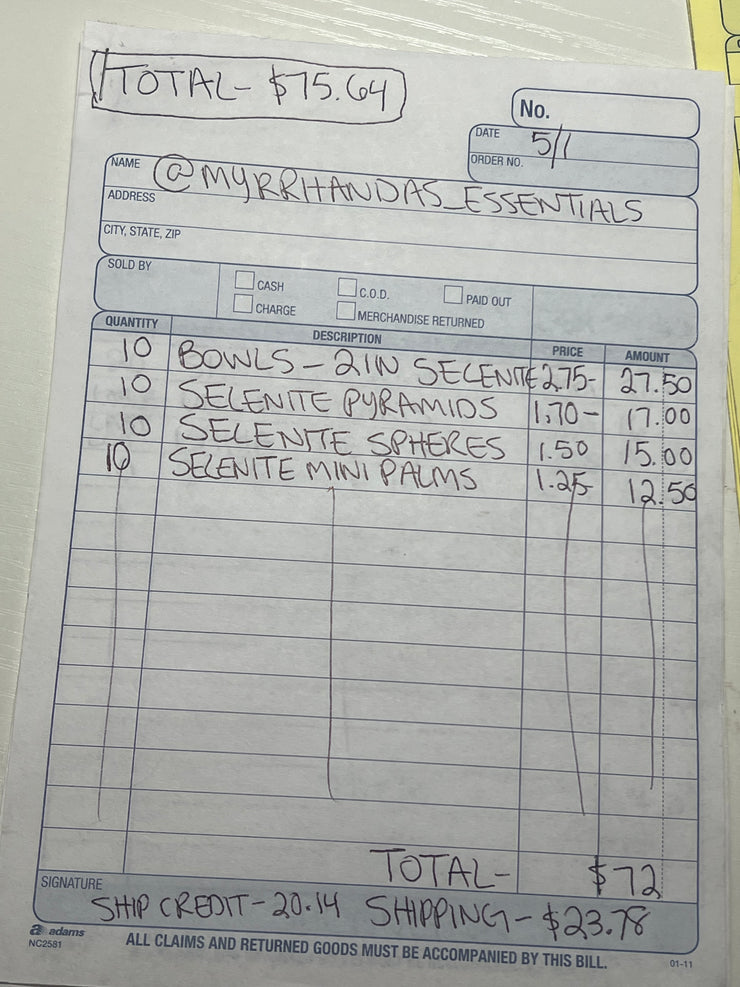 TOTAL- $75.64
No.
DATE 5/1
ORDER NO.
NAME @MYRRHANDAS_ESSENTIALS
ADDRESS
CITY, STATE, ZIP
SOLD BY
CASH C.O.D. PAID OUT
CHARGE MERCHANDISE RETURNED
QUANTITY DESCRIPTION PRICE AMOUNT
10 BOWLS - 2IN SELENITE 2.75- 27.50
10 SELENITE PYRAMIDS 1.70- 17.00
10 SELENITE SPHERES 1.50 15.00
10 SELENITE MINI PALMS 1.25 12.50
TOTAL- $72
SIGNATURE
SHIP CREDIT - 20.14 SHIPPING - $23.78
a adams
NC2581
ALL CLAIMS AND RETURNED GOODS MUST BE ACCOMPANIED BY THIS BILL.
01-11